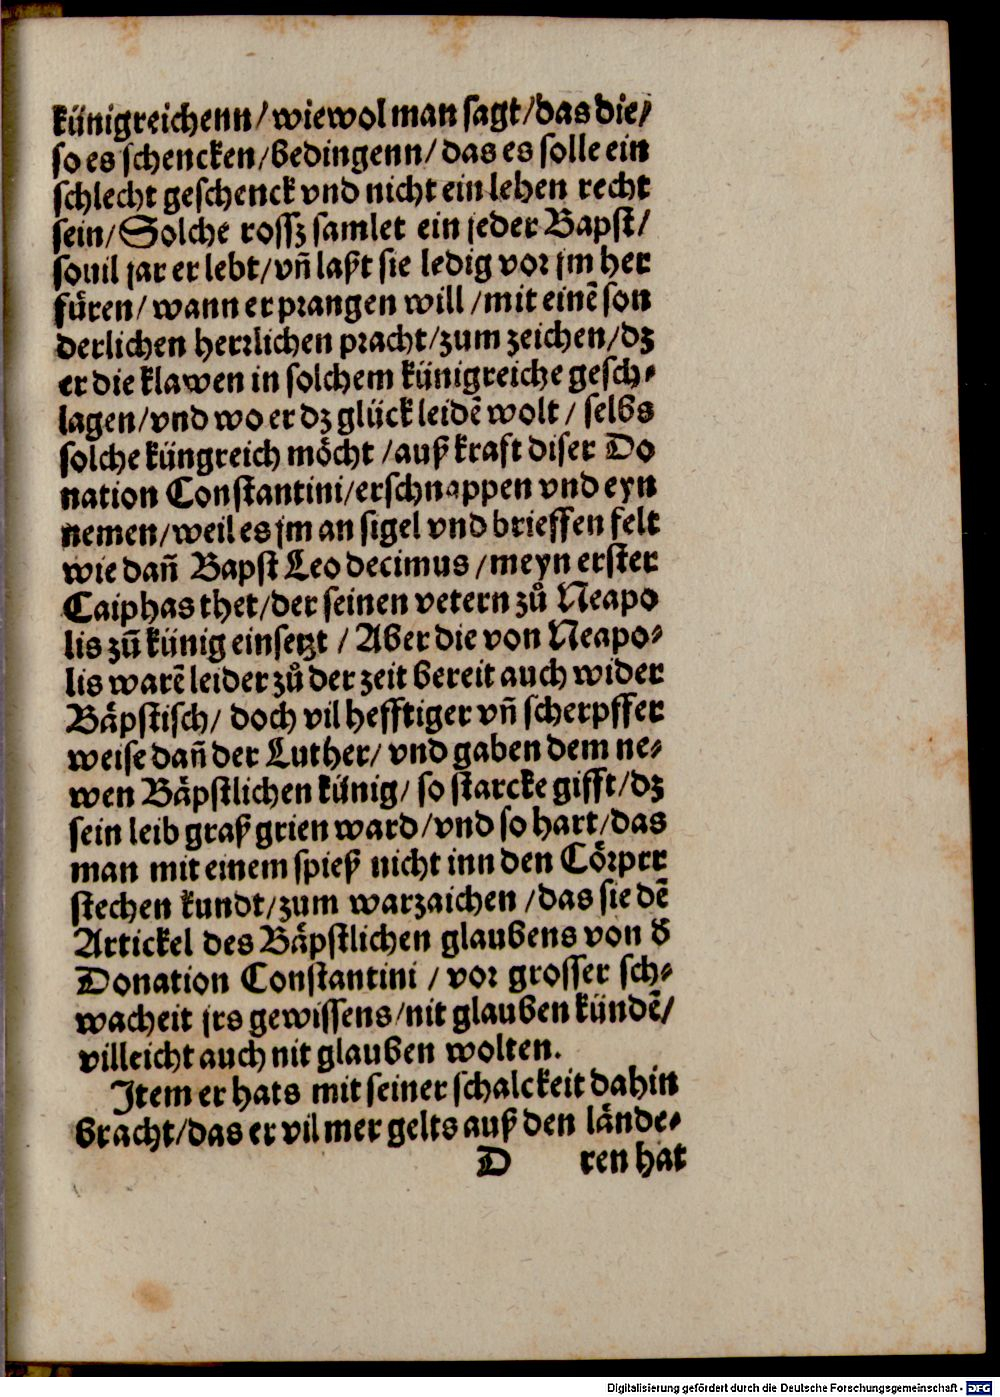 künigreichenn/ wiewol man sagt/ das die/
so es schencken/ bedingenn/ das es solle ein
schlecht geschenck vnd nicht ein lehen recht
sein/ Solche rossz samlet ein jeder Bapst/
souil jar er lebt/ vñ laßt sie ledig vor jm her
füren/ wann er prangen will/ mit einẽ son
derlichen herrlichen pracht/ zum zeichen/ dz
er die klawen in solchem künigreiche gesch-
lagen/ vnd wo er dz glück leidẽ wolt/ selbs
solche küngreich möcht/ auß kraft diser Do
nation Constantini/ erschnappen vnd eyn
nemen/ weil es jm an sigel vnd brieffen felt
wie dañ Bapst Leo decimus/ meyn erster
Caiphas thet/ der seinen vetern zů Neapo
lis zũ künig einsetzt/ Aber die von Neapo-
lis warẽ leider zů der zeit bereit auch wider
Bäpstisch/ doch vil hefftiger vñ scherpffer
weise dañ der Luther/ vnd gaben dem ne-
wen Bäpstlichen künig/ so starcke gifft/ dz
sein leib graß grien ward/ vnd so hart/ das
man mit einem spieß nicht inn den Cörper
stechen kundt/ zum warzaichen/ das sie dẽ
Artickel des Bäpstlichen glaubens von d̕
Donation Constantini/ vor grosser sch-
wacheit jrs gewissens/ nit glauben kündẽ/
villeicht auch nit glauben wolten.
Item er hats mit seiner schalckeit dahin
bracht/ das er vil mer gelts auß den lände-
D ren hat
Digitalisierung gefördert durch die Deutsche Forschungsgemeinschaft - DFG